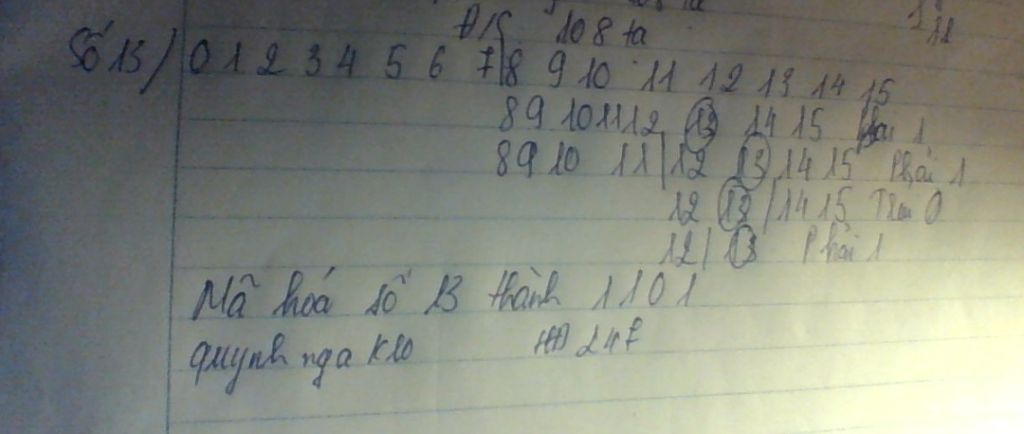 Đ/S 108 ta
Số 13) 0 1 2 3 4 5 6 7|8 9 10 11 12 13 14 15
8 9 10 11 12 13 14 15 Phải 1
8 9 10 11|12 13 14 15 Phải 1
12 13|14 15 Trái 0
12|13 Phải 1
Mã hóá số 13 thành 1101
quynh nga K10